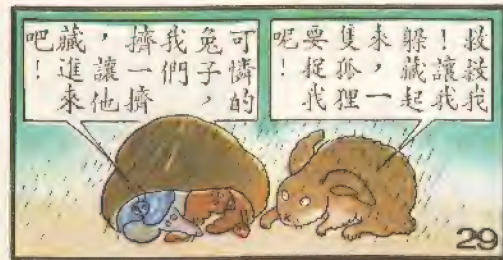 救救我
！讓我
躲藏起
來，一
隻狐狸
要捉我
呢！
可憐的
兔子，
我們
擠一擠
，讓他
藏進來
吧！
29